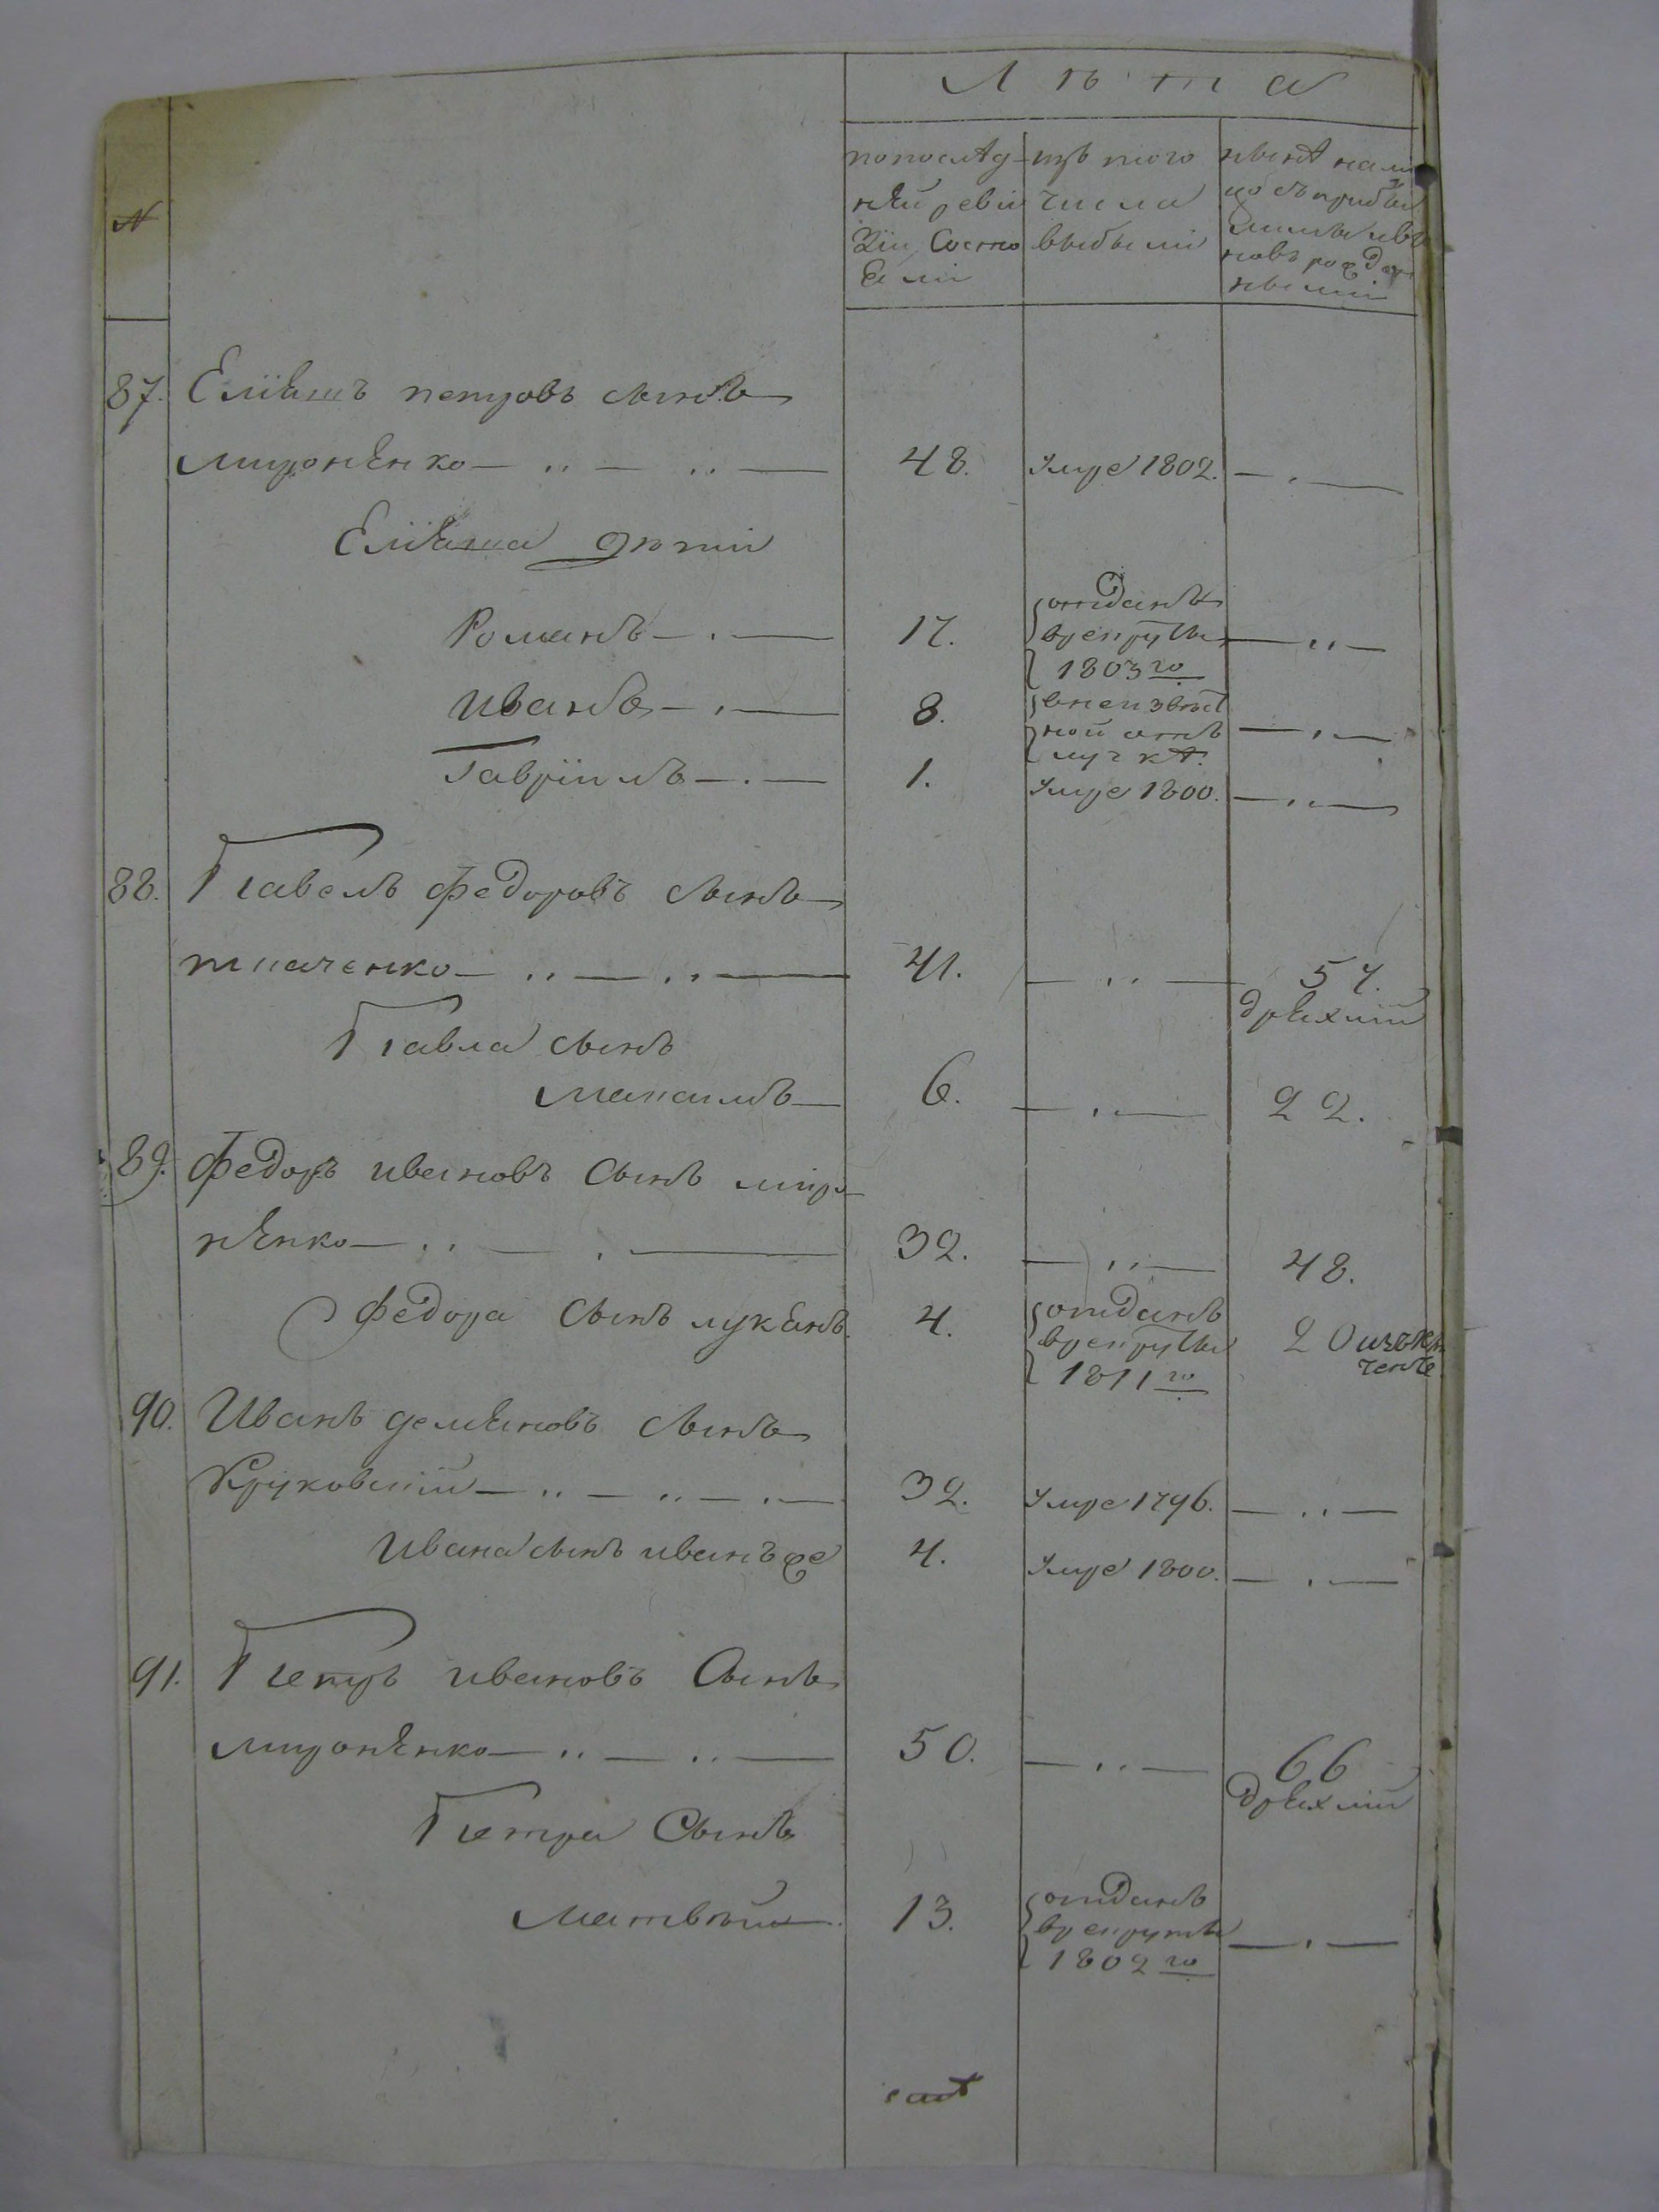 Лѣта
№
попослѣд
нѣй реви
зіи Состо
яли
изъ того
числа
выбыли
нынѣ нали
цо съ прибы
лыми и въ
новь рожден
ными
87. Еліяшъ петровъ сынъ
миронѣнко 48. Умре 1802.
Еліяша дѣти
Романъ 17. отданъ
врекруты
1803го
иванъ 8. внеизвѣст
ной отъ
лучкѣ.
Гавріилъ 1. Умре 1800.
88. Павелъ федоровъ сынъ
ткаченко 41. 57.
дряхлій
Павла сынъ
Макаимъ 6. 22.
89. Федоръ ивановъ сынъ миро
нѣнко 32. 48.
Федора сынъ лукянъ. 4. отданъ
врекруты
1811го 20 изъклю
ченъ
90. Иванъ демяновъ сынъ
Круковскій 32. Умре 1796.
Ивана сынъ иванъ же 4. Умре 1800.
91. Петръ ивановъ сынъ
миронѣнко 50. 66
дряхлій
Петра Сынъ
Матвѣй 13. отданъ
врекруты
1802го